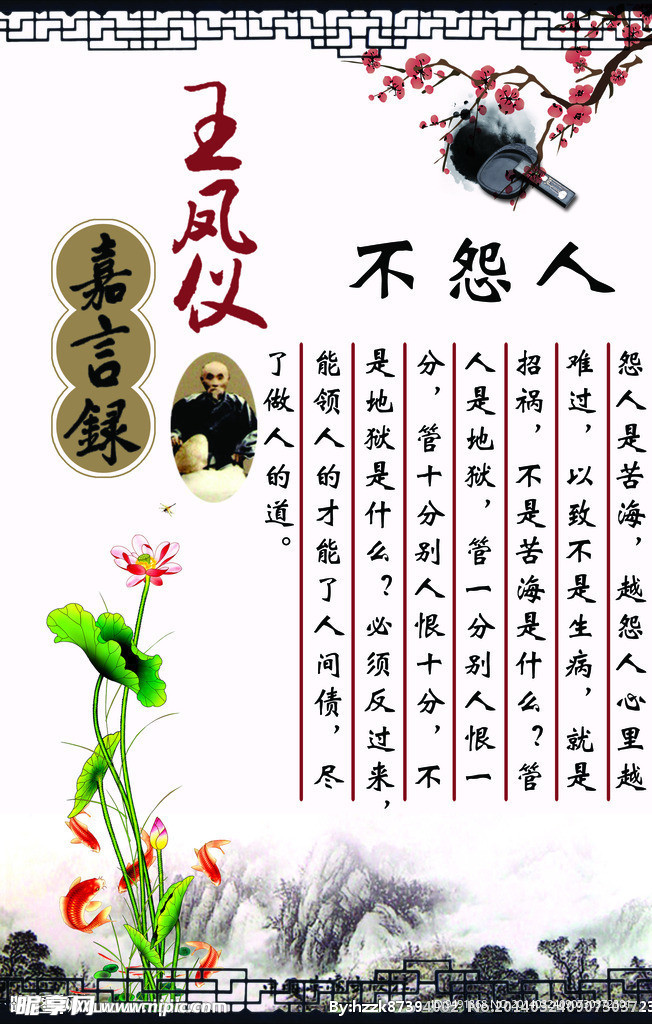 王凤仪
嘉言録
不怨人
怨人是苦海，越怨人心里越
难过，以致不是生病，就是
招祸，不是苦海是什么？管
人是地狱，管一分别人恨一
分，管十分别人恨十分，不
是地狱是什么？必须反过来，
能领人的才能了人间债，尽
了做人的道。
昵享网 www.nipic.com